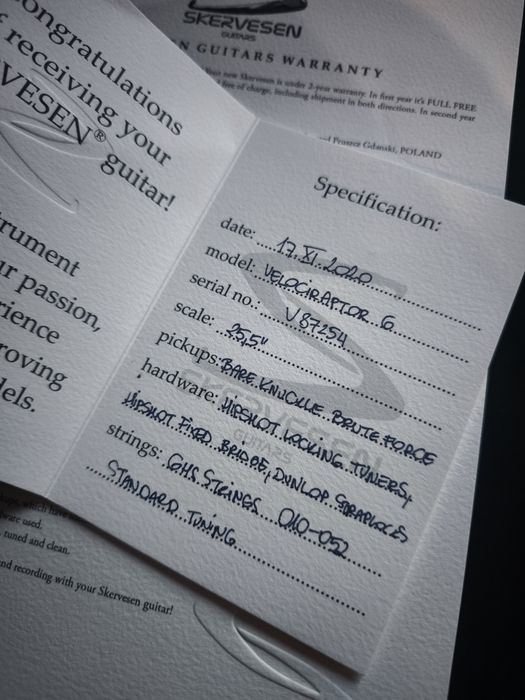 SKERVESEN
GUITARS
N GUITARS WARRANTY
your new Skervesen is under 2-year warranty. In first year it's FULL FREE
of charge, including shipment in both directions. In second year
Pruszcz Gdanski, POLAND
ongratulations
receiving your
RVESEN®
guitar!
trument
ur passion,
rience
roving
dels.
Specification:
date: 17.XI.2020
model: VELOCIRAPTOR 6
serial no.: V87254
scale: 25,5"
pickups: BARE KNUCKLE BRUTE FORCE
hardware: HIPSHOT LOCKING TUNERS,
HIPSHOT FIXED BRIDGE, DUNLOP STRAPLOCKS
strings: GHS STRINGS 010-052
STANDARD TUNING
SKERVESEN
GUITARS
which have
ware used.
tuned and clean.
nd recording with your Skervesen guitar!